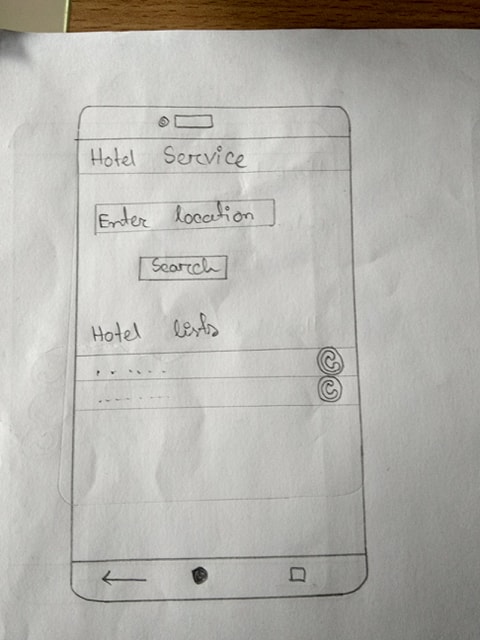 Hotel Service
Enter location
Search
Hotel lists